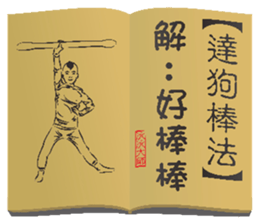 【達狗棒法】
解：好棒棒